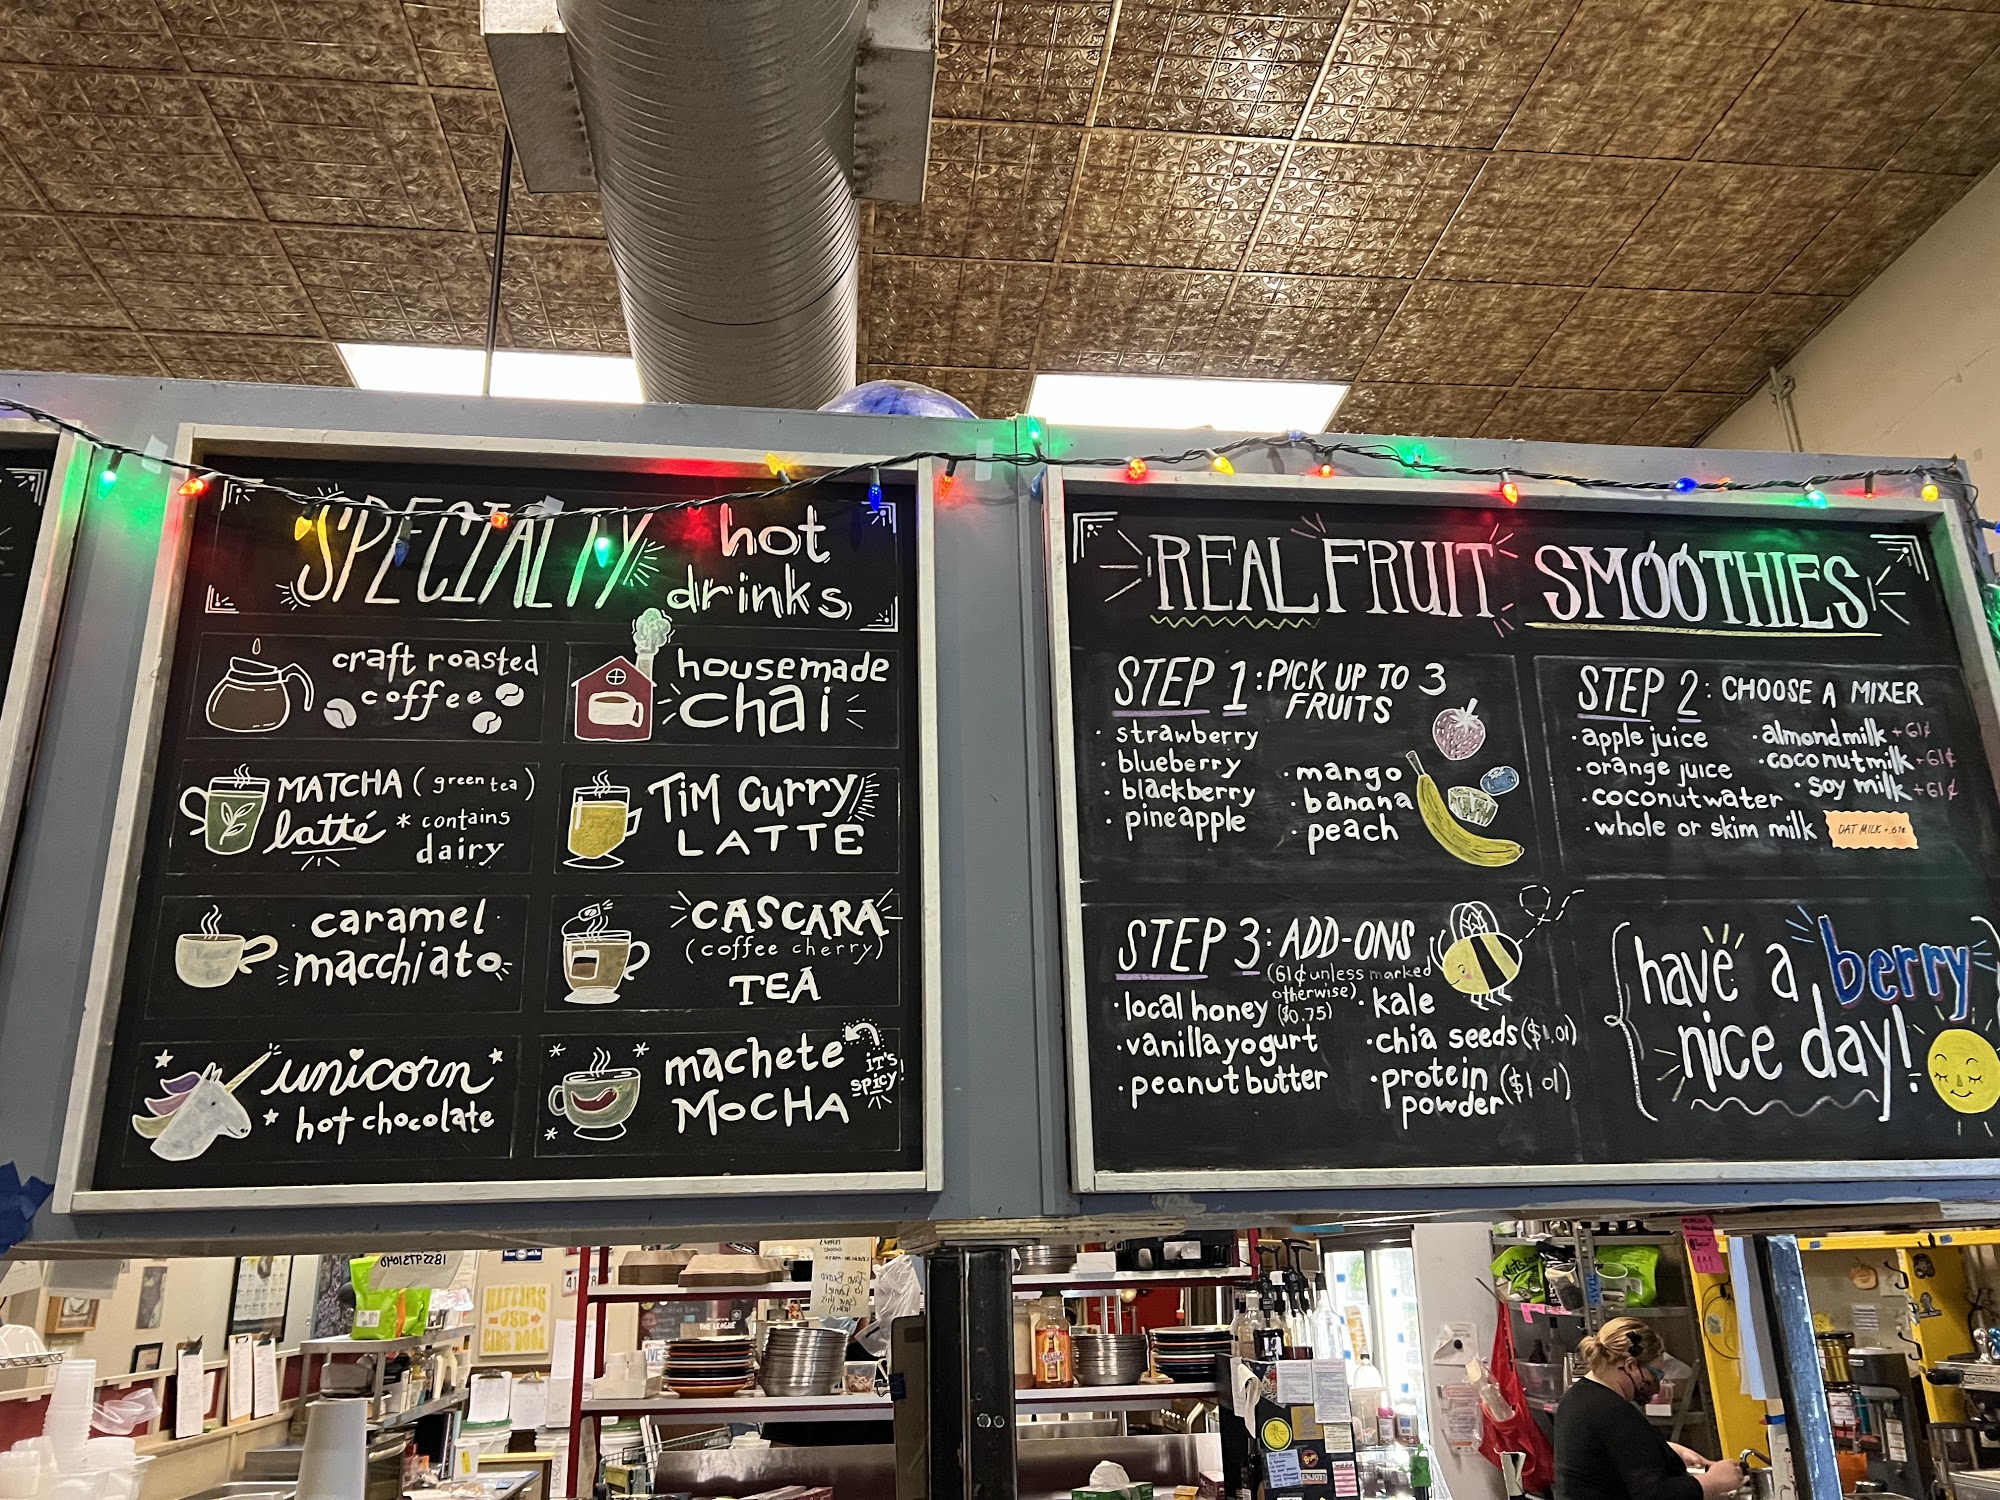 SPECIALTY hot drinks
craft roasted
coffee
housemade
chai
MATCHA (green tea)
latté * contains
dairy
TiM Curry
LATTE
caramel
macchiato
CASCARA
(coffee cherry)
TEA
unicorn
hot chocolate
machete
MOCHA
it's
spicy!
REAL FRUIT SMOOTHIES
STEP 1: PICK UP TO 3
FRUITS
• strawberry
• blueberry
• blackberry
• pineapple
• mango
• banana
• peach
STEP 2: CHOOSE A MIXER
• apple juice
• orange juice
• coconut water
• whole or skim milk
• almond milk +61¢
• coconut milk +61¢
• soy milk +61¢
OAT MILK +.61¢
STEP 3: ADD-ONS
(61¢ unless marked
otherwise)
• local honey ($0.75)
• vanilla yogurt
• peanut butter
• kale
• chia seeds ($1.01)
• protein ($1.01)
powder
have a berry
nice day!
185529731040
THE LEAGUE
ENJOY!